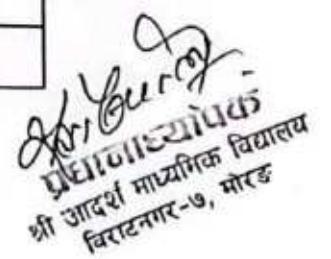 प्रधानाध्यापक
श्री आदर्श माध्यमिक विद्यालय
विराटनगर-७, मोरङ